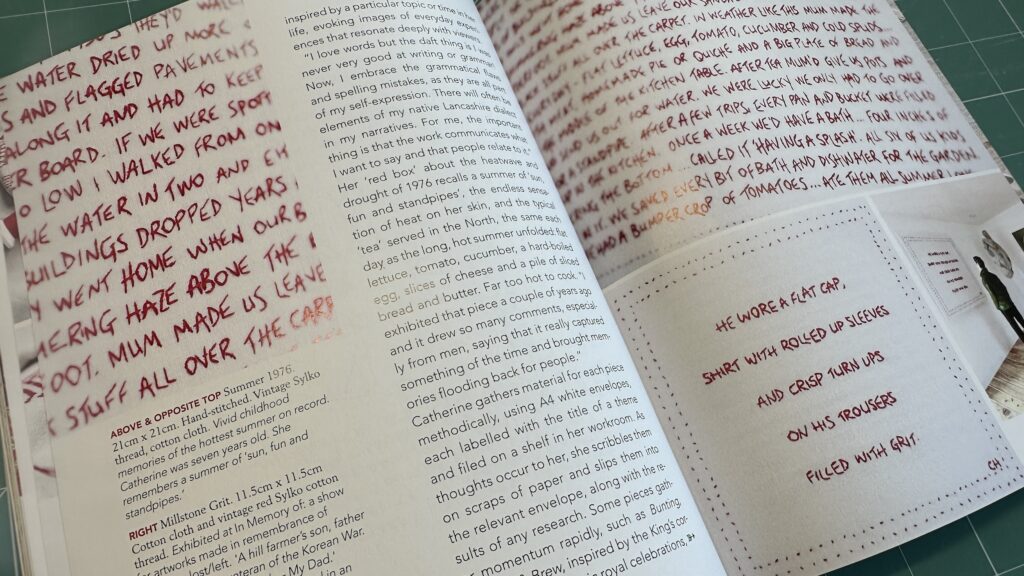 WATER DRIED UP MORE
AND FLAGGED PAVEMENTS
ALONG IT AND HAD TO KEEP
BOARD. IF WE WERE SPOTT
LOW I WALKED FROM ON
THE WATER IN TWO AND
BUILDINGS DROPPED YEARS
WENT HOME WHEN OUR B
MERNG HAZE ABOVE THE
OOT. MUM MADE US LEAVE
STUFF ALL OVER THE CARP
ABOVE & OPPOSITE TOP Summer 1976.
21cm x 21cm. Hand-stitched. Vintage Sylko
thread, cotton cloth. Vivid childhood
memories of the hottest summer on record.
Catherine was seven years old. She
remembers a summer of 'sun, fun and
standpipes.'
RIGHT Millstone Grit. 11.5cm x 11.5cm
Cotton cloth and vintage red Sylko cotton
thread. Exhibited at In Memory of: a show
for artworks made in remembrance of
lost/left. 'A hill farmer's son, father
veteran of the Korean War.
My Dad.'
inspired by a particular topic or time in her
life, evoking images of everyday experi-
ences that resonate deeply with viewers.
"I love words but the daft thing is I was
never very good at writing or grammar.
Now, I embrace the grammatical flaws
and spelling mistakes, as they are all part
of my self-expression. There will often be
elements of my native Lancashire dialect
in my narratives. For me, the important
thing is that the work communicates what
I want to say and that people relate to it."
Her 'red box' about the heatwave and
drought of 1976 recalls a summer of 'sun,
fun and standpipes', the endless sensa-
tion of heat on her skin, and the typical
'tea' served in the North, the same each
day as the long, hot summer unfolded: flat
lettuce, tomato, cucumber, a hard-boiled
egg, slices of cheese and a pile of sliced
bread and butter. Far too hot to cook. "I
exhibited that piece a couple of years ago
and it drew so many comments, especial-
ly from men, saying that it really captured
something of the time and brought mem-
ories flooding back for people."
Catherine gathers material for each piece
methodically, using A4 white envelopes,
each labelled with the title of a theme
and filed on a shelf in her workroom. As
thoughts occur to her, she scribbles them
on scraps of paper and slips them into
the relevant envelope, along with the re-
sults of any research. Some pieces gath-
momentum rapidly, such as Bunting,
Brew, inspired by the King's cor-
royal celebrations,
MADE US LEAVE OUR
ALL OVER THE CARPET. IN WEATHER LIKE THIS MUM MADE THE
FLAT LETTUCE, EGG, TOMATO, CUCUMBER AND COLD SPUDS...
HOMEMADE PIE OR QUICHE AND A BIG PLATE OF BREAD AND
OF THE KITCHEN TABLE. AFTER TEA MUM'D GIVE US POTS AND
US OUT FOR WATER. WE WERE LUCKY WE ONLY HAD TO GO OVER
AFTER A FEW TRIPS EVERY PAN AND BUCKET WERE FILLED
IN THE KITCHEN. ONCE A WEEK WE'D HAVE A BATH... FOUR INCHES OF
THE BOTTOM ... CALLED IT 'HAVING A SPLASH'. ALL SIX OF US KIDS
IF. WE SAVED EVERY BIT OF BATH AND DISHWATER FOR THE GARDEN.
HAD A BUMPER CROP OF TOMATOES... ATE THEM ALL SUMMER
HE WORE A FLAT CAP,
SHIRT WITH ROLLED UP SLEEVES
AND CRISP TURN UPS
ON HIS TROUSERS
FILLED WITH GRIT.
CH.